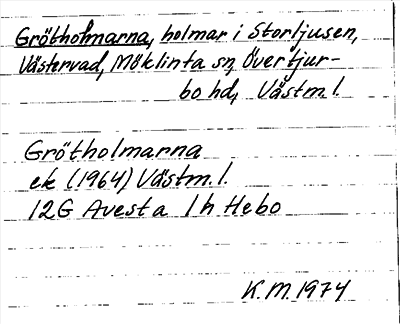 Grötholmarna, holmar i Storljusen,
Västervad, Möklinta sn, Övertjur-
bo hd, Västm.l.
Grötholmarna
ek (1964) Västm.l.
12G Avesta 1h Hebo
K.M. 1974